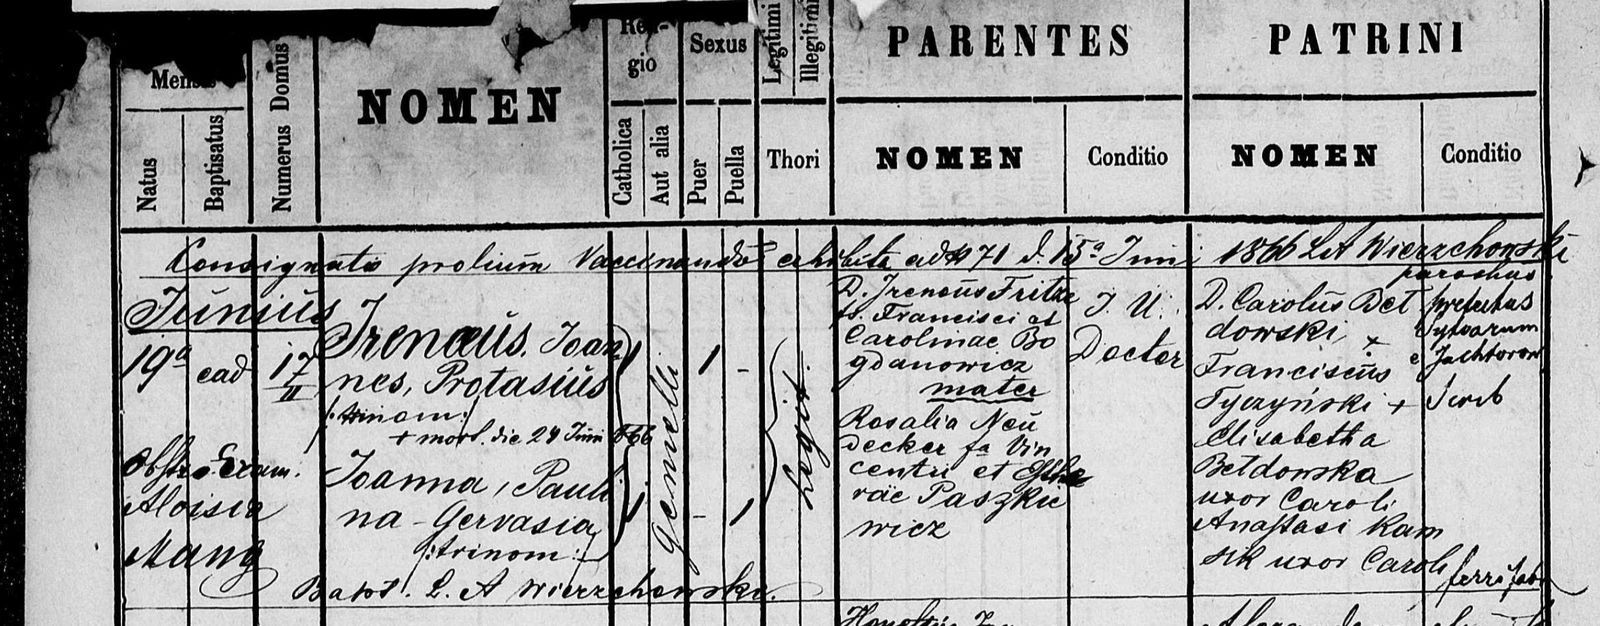 Mensis
Numerus Domus
NOMEN
Reli-
gio
Sexus
Legitimi
Illegitimi
PARENTES
PATRINI
Natus
Baptisatus
Catholica
Aut alia
Puer
Puella
Thori
NOMEN
Conditio
NOMEN
Conditio
Consignatio prolium Vaccinando exhibita ad N 71 d. 15a Junii 1866 LA Wierzchowski
parochus
Junius
19a ead 17
II
Irenaeus, Joan
nes, Protasius
/:trinom:/
+ mort. die 24 Juni 866
Joanna, Pauli
na - Gervasia
/:trinom:/
Gemelli
1 -
- 1
Legit.
D. Ireneus Fritze
fs. Francisci et
Carolinae Bo
gdanowicz
mater
Rosalia Neu
decker fa Vin
centii et
Paszkie
wicz
J. U.
Doctor
D. Carolus Bet
dowski, +
Franciscus
Tyczyński +
Elisabetha
Betdowska
uxor Caroli
Anastasi Kam
sik uxor Caroli
prefectus
Sylvarum
e
Scrib
ferri fabri
Obstr. Exam.
Aloisia
Mang
Bapt. L. A Wierzchowski.